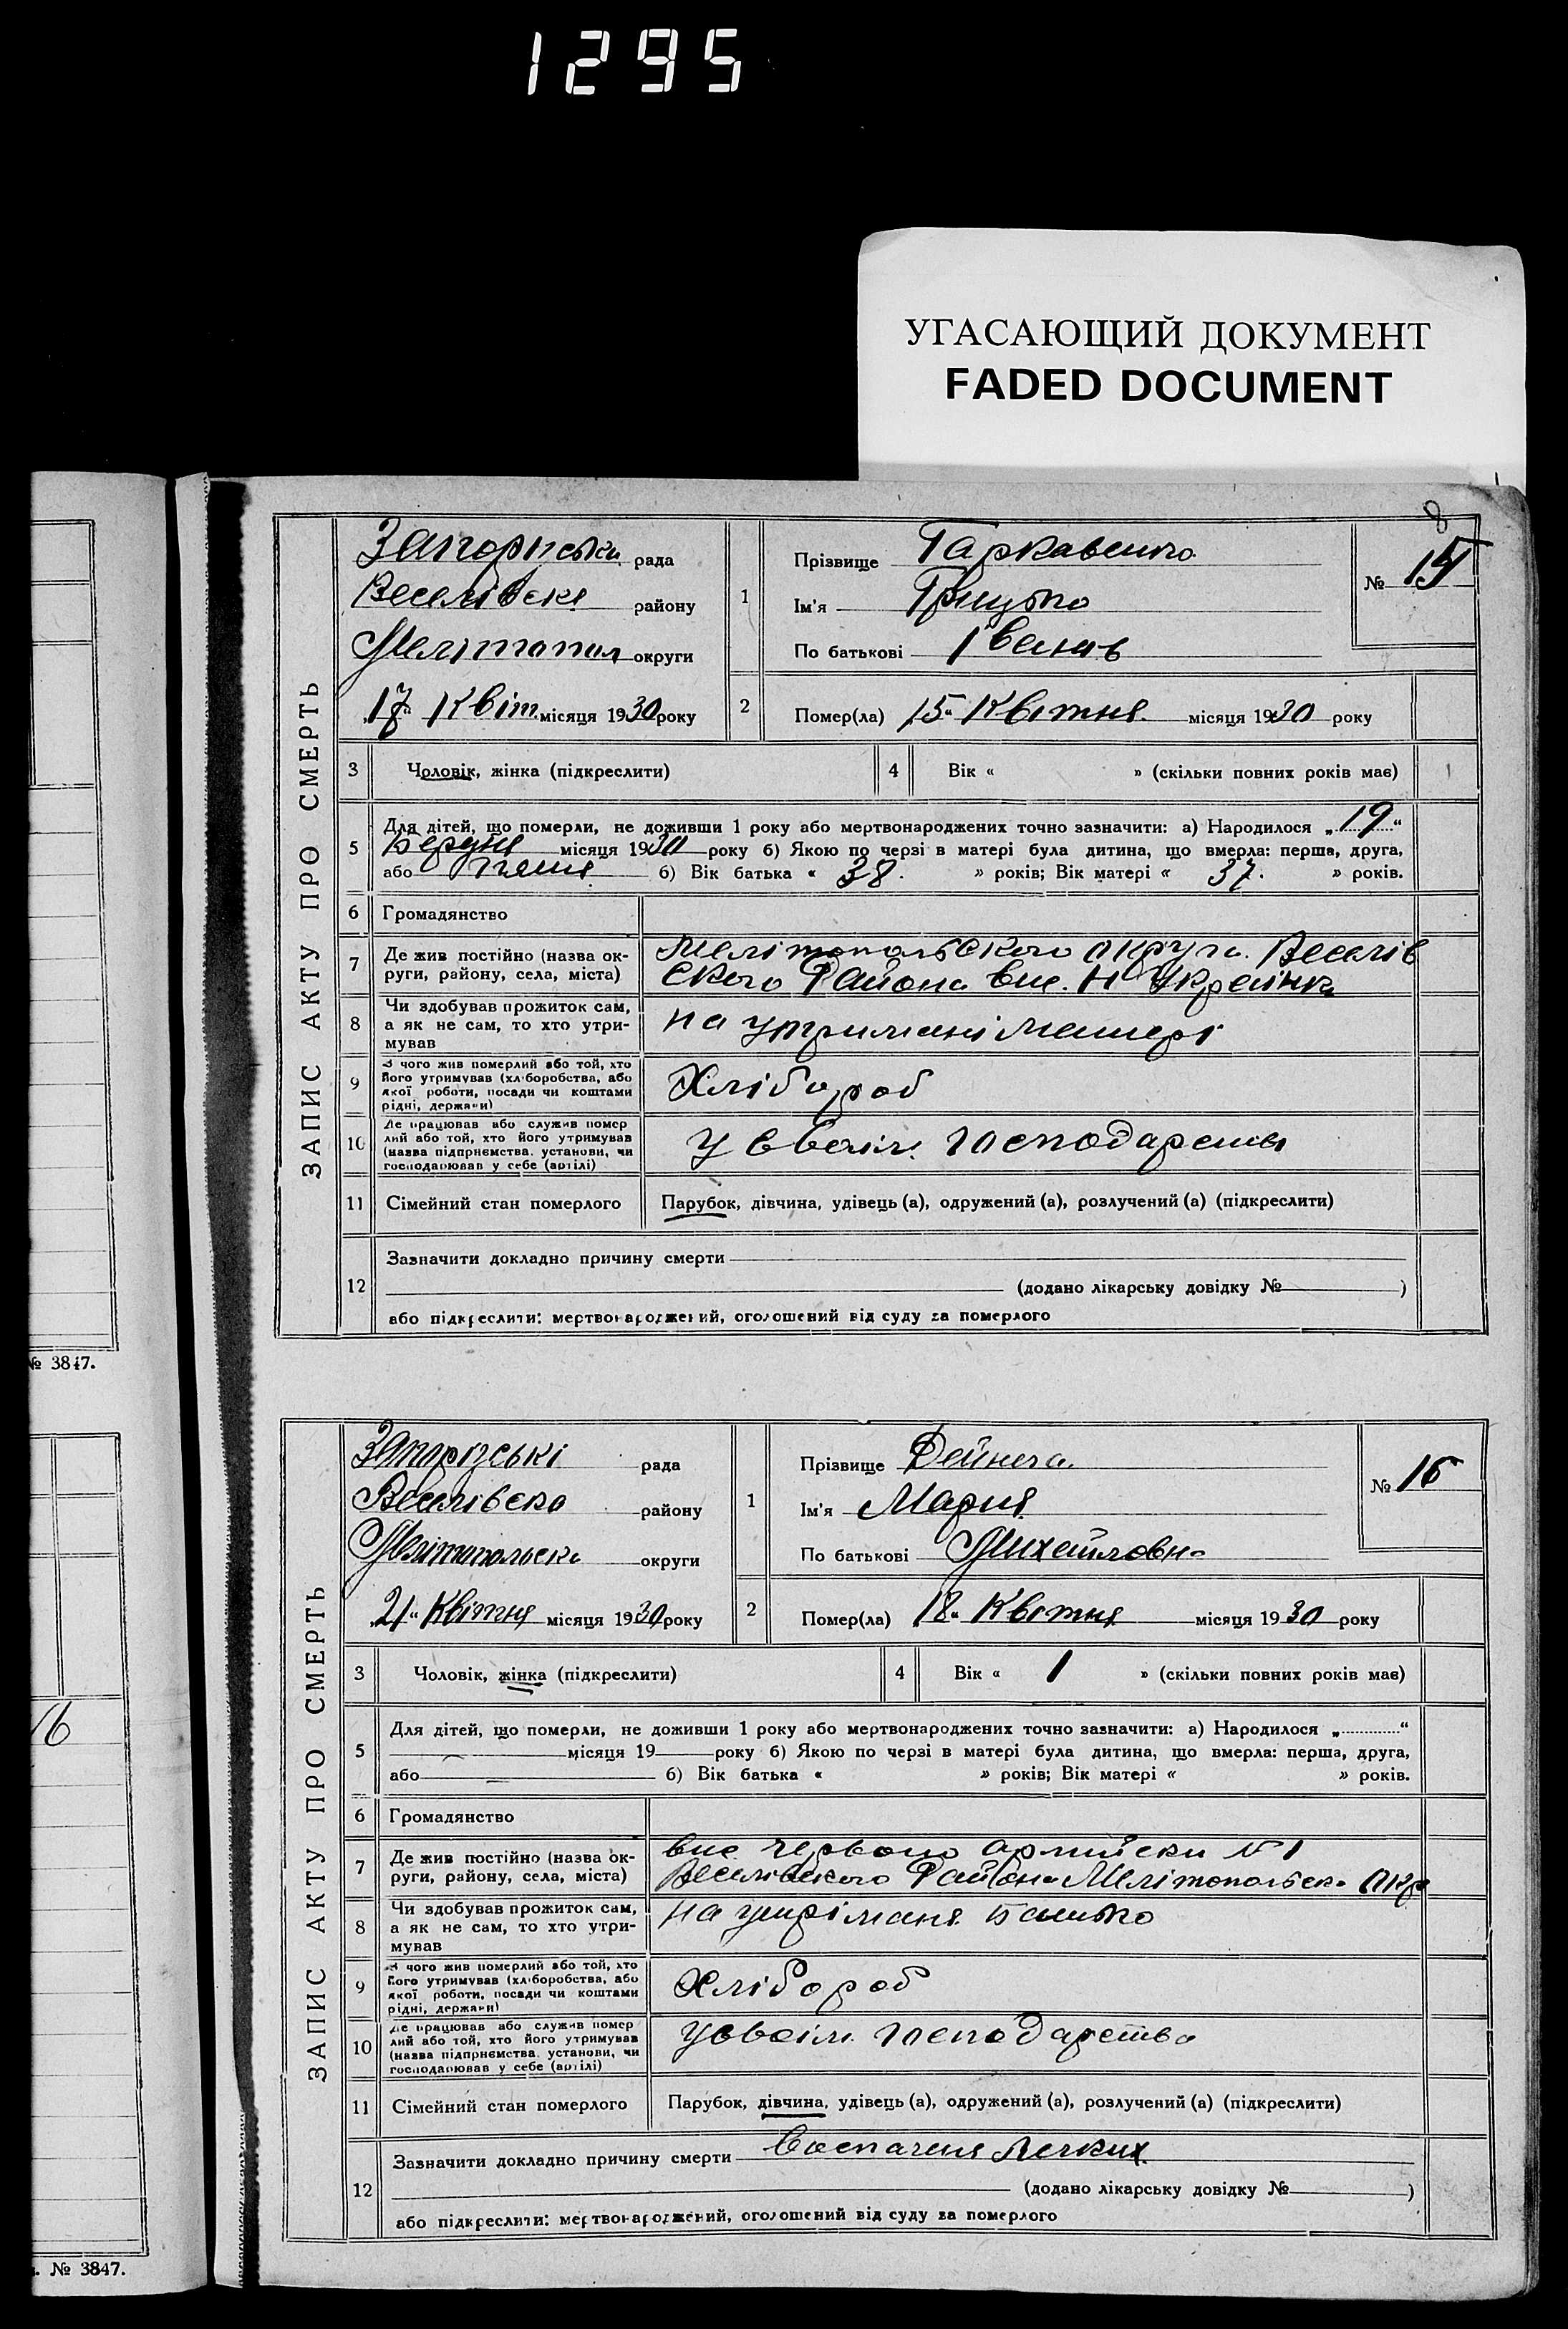 1295
УГАСАЮЩИЙ ДОКУМЕНТ
FADED DOCUMENT
8
ЗАПИС АКТУ ПРО СМЕРТЬ
рада
Веселівське району
Мелітопол округи
„17“ Квіт. місяця 1930 року
1
Прізвище Гаркавенко
Ім'я Грицько
По батькові Іванів
№ 15
2
Помер(ла) „15“ Квітня місяця 1930 року
3 Чоловік, жінка (підкреслити)
4 Вік « » (скільки повних років має)
5 Для дітей, що померли, не доживши 1 року або мертвонароджених точно зазначити: а) Народилося „19“
місяця 1930 року б) Якою по черзі в матері була дитина, що вмерла: перша, друга,
або б) Вік батька « 38. » років; Вік матері « 37. » років.
6 Громадянство
7 Де жив постійно (назва округи, району, села, міста) Мелітопольского округи Веселів
ского Району вис. Н Украінка
8 Чи здобував прожиток сам, а як не сам, то хто утримував
на утримані матері
9 З чого жив померлий або той, хто його утримував (хліборобства, або якої роботи, посади чи коштами рідні, держави)
Хлібороб
10 Де працював або служив померлий або той, хто його утримував (назва підприємства, установи, чи господарював у себе (артілі)
у своім господарстві
11 Сімейний стан померлого Парубок, дівчина, удівець (а), одружений (а), розлучений (а) (підкреслити)
12 Зазначити докладно причину смерти
(додано лікарську довідку № )
або підкреслити: мертвонароджений, оголошений від суду за померлого
№ 3847.
ЗАПИС АКТУ ПРО СМЕРТЬ
рада
Веселівско району
Мелітопольска округи
„21“ Квітня місяця 1930 року
1
Прізвище Дейнега
Ім'я Мария
По батькові Михайловна
№ 16
2
Помер(ла) „18“ Квітня місяця 1930 року
3 Чоловік, жінка (підкреслити)
4 Вік « 1 » (скільки повних років має)
5 Для дітей, що померли, не доживши 1 року або мертвонароджених точно зазначити: а) Народилося „ “
місяця 19 року б) Якою по черзі в матері була дитина, що вмерла: перша, друга,
або б) Вік батька « » років; Вік матері « » років.
16
6 Громадянство
7 Де жив постійно (назва округи, району, села, міста) вис Червоно армійски № 1
Веселівского Району Мелітопольск. Окр
8 Чи здобував прожиток сам, а як не сам, то хто утримував
на утріманя Батько
9 З чого жив померлий або той, хто його утримував (хліборобства, або якої роботи, посади чи коштами рідні, держави)
Хлібороб
10 Де працював або служив померлий або той, хто його утримував (назва підприємства, установи, чи господарював у себе (артілі)
у своім господарстві
11 Сімейний стан померлого Парубок, дівчина, удівець (а), одружений (а), розлучений (а) (підкреслити)
12 Зазначити докладно причину смерти Воспаленя Легких
(додано лікарську довідку № )
або підкреслити: мертвонароджений, оголошений від суду за померлого
№ 3847.